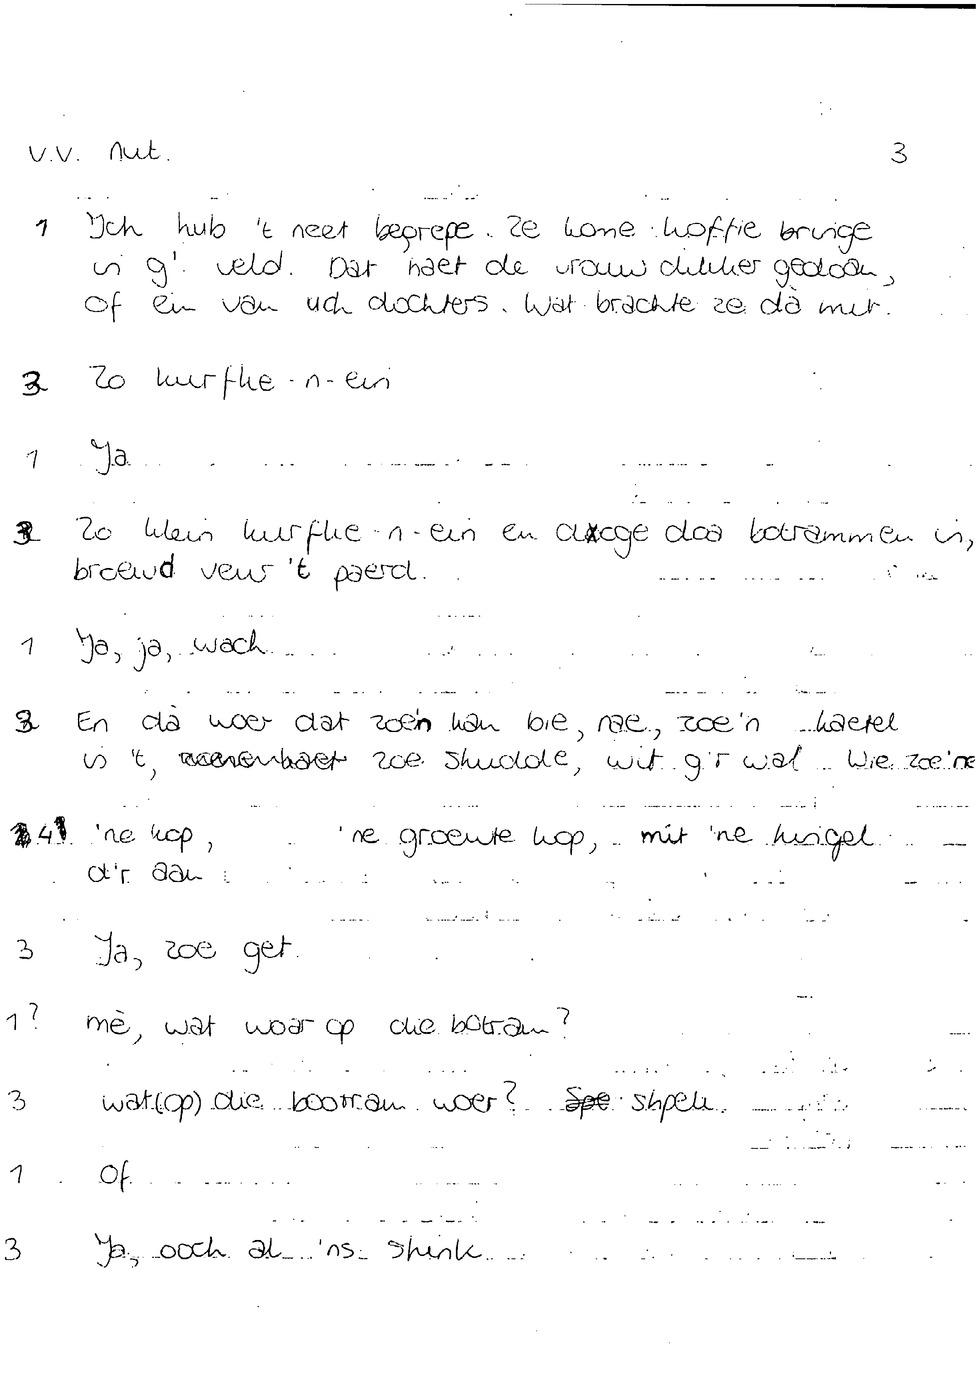 v.v. Nut. 3
1 Ich hub 't neet begrepe. Ze kome koffie bringe
in g'. veld. Dat haet de vrouw dikker gedoan,
of ein van uch dochters. Wat brachte ze dà mit.
3 Zo kurfke-n-ein
1 Ja
3 Zo klein kurfke-n-ein en doa botrammen in,
broeud veur 't paerd.
1 Ja, ja, wach
3 En dà woer dat zoe'n kan bie, nae, zoe'n kaetel
in 't, zoe shudde, wit g'r wal. Wie zoe'ne
4 'ne kop, 'ne groeute kop, mit 'ne hingel
d'r aan
3 Ja, zoe get.
1? mè, wat woar op die botram?
3 wat(op) die bootram woer? Spe shpek.
1 Of
3 Ja, ooch al 'ns shink